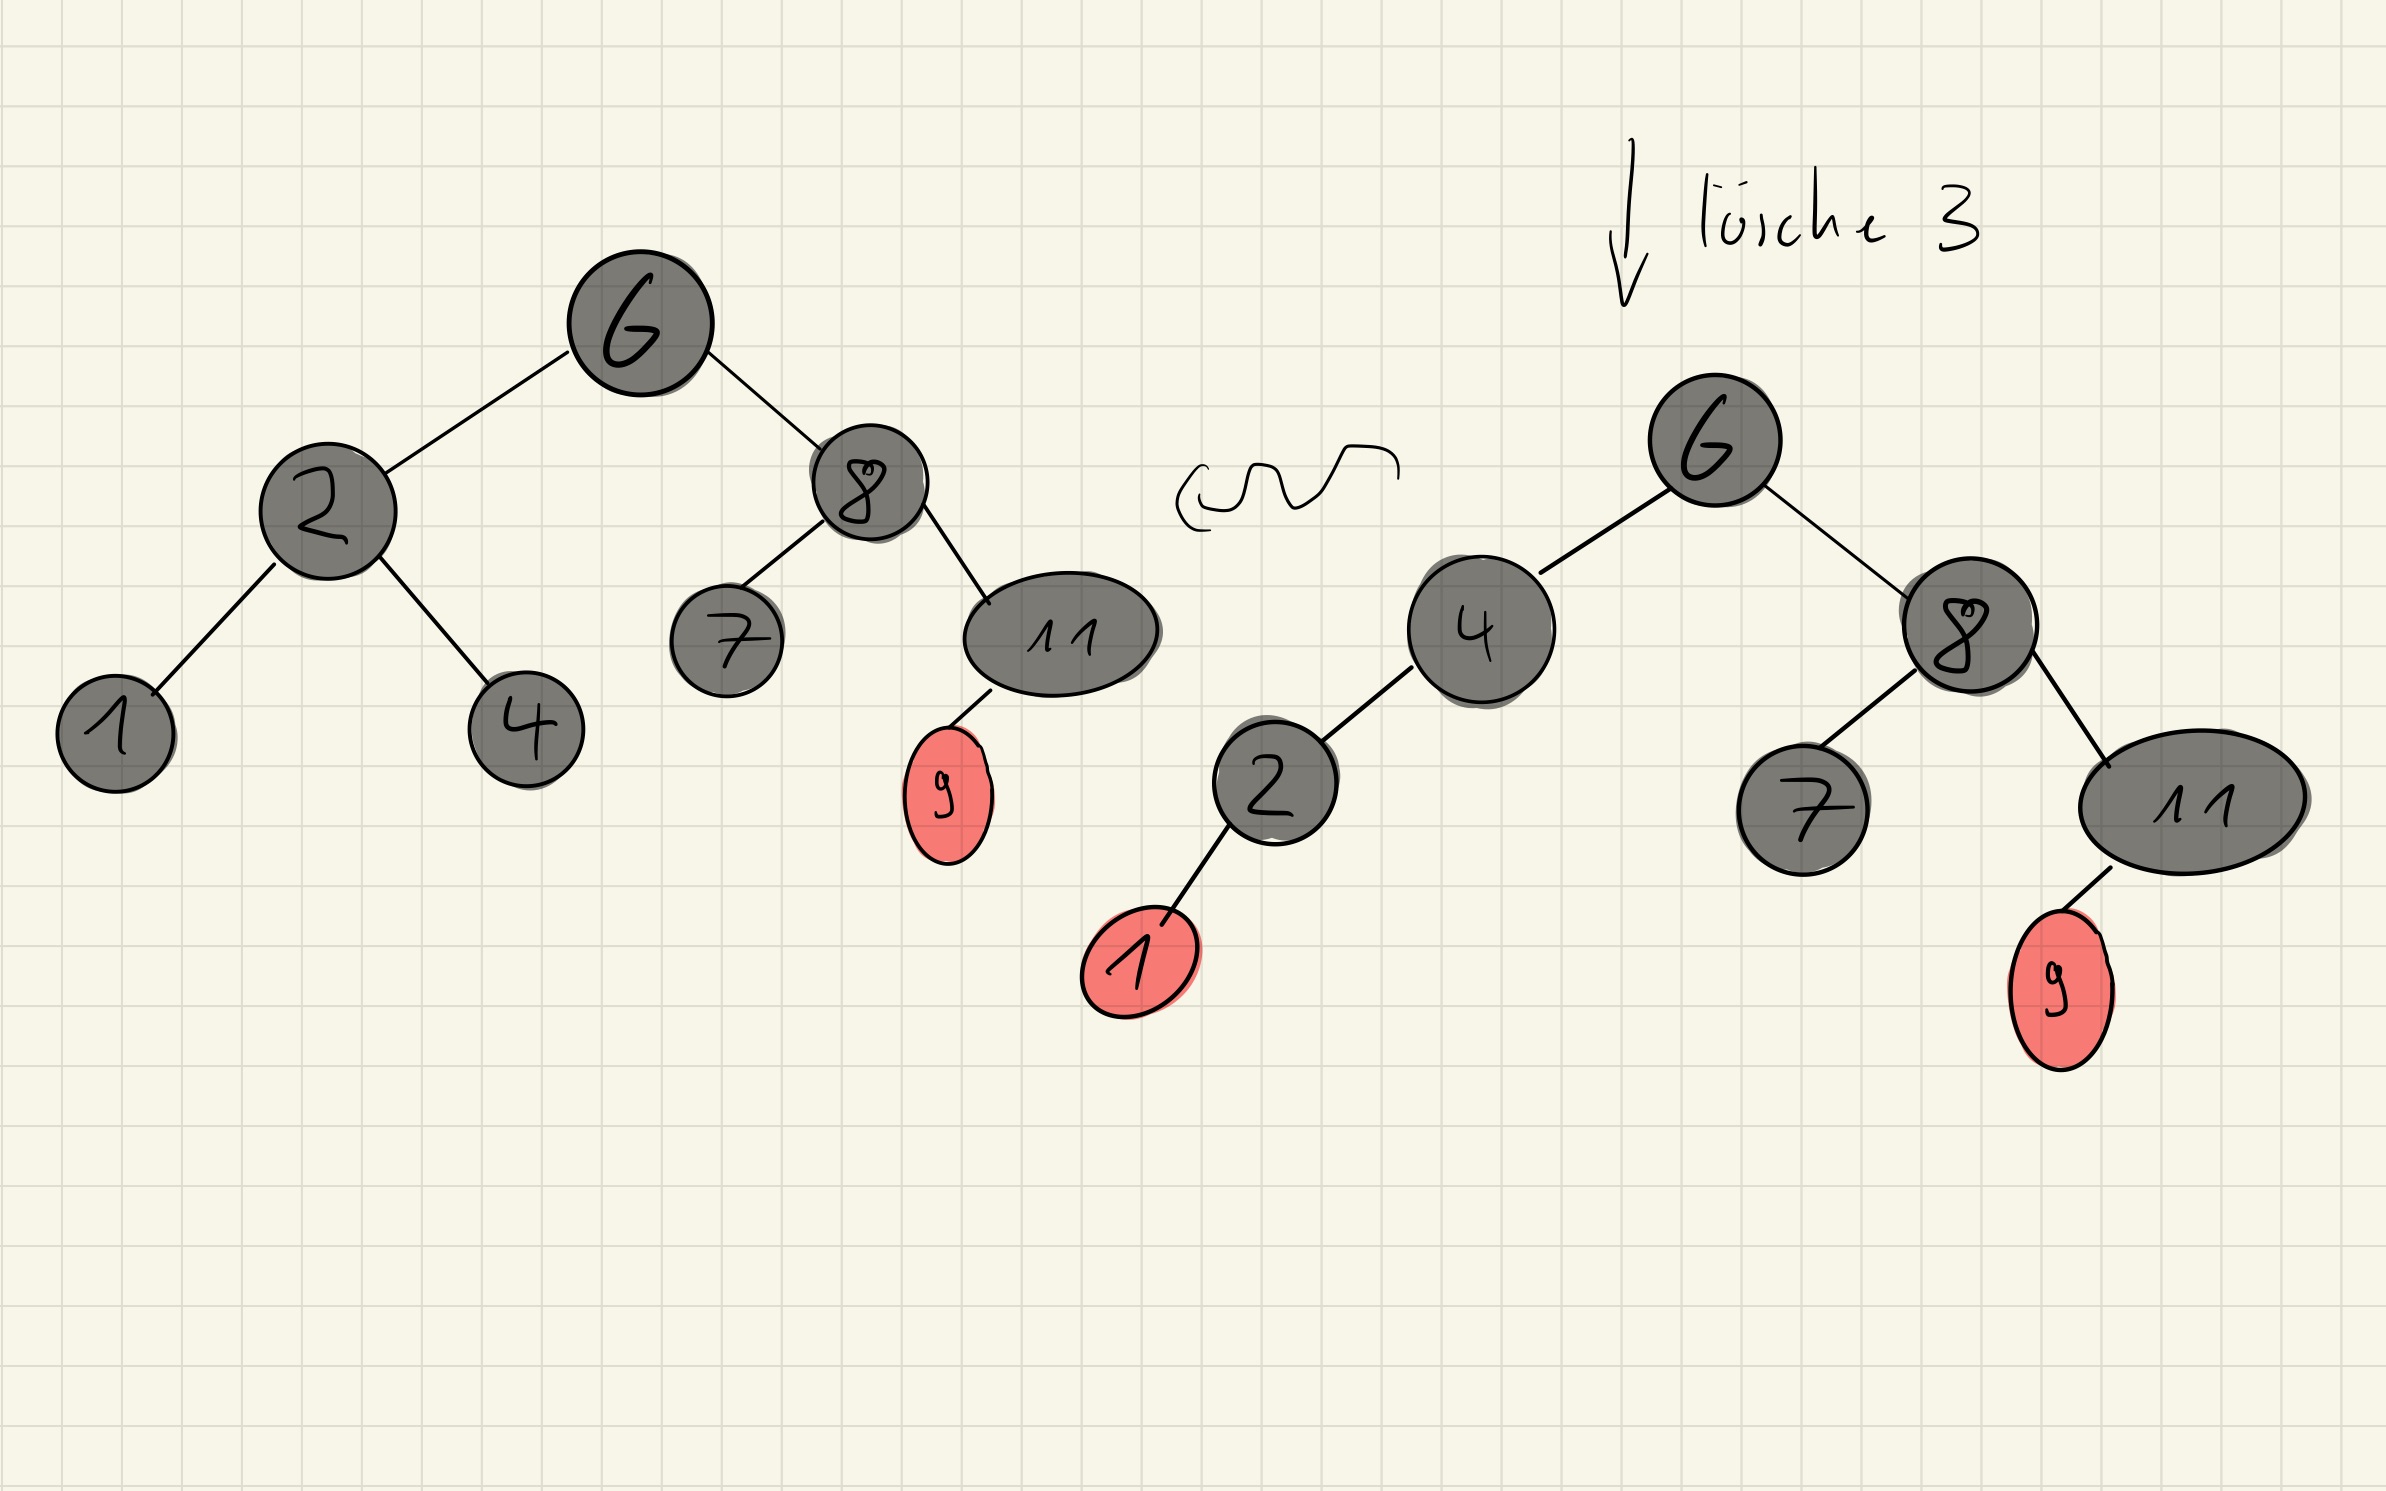 ↓ lösche 3
6
2
8
1
4
7
11
9
6
4
8
2
7
11
1
9